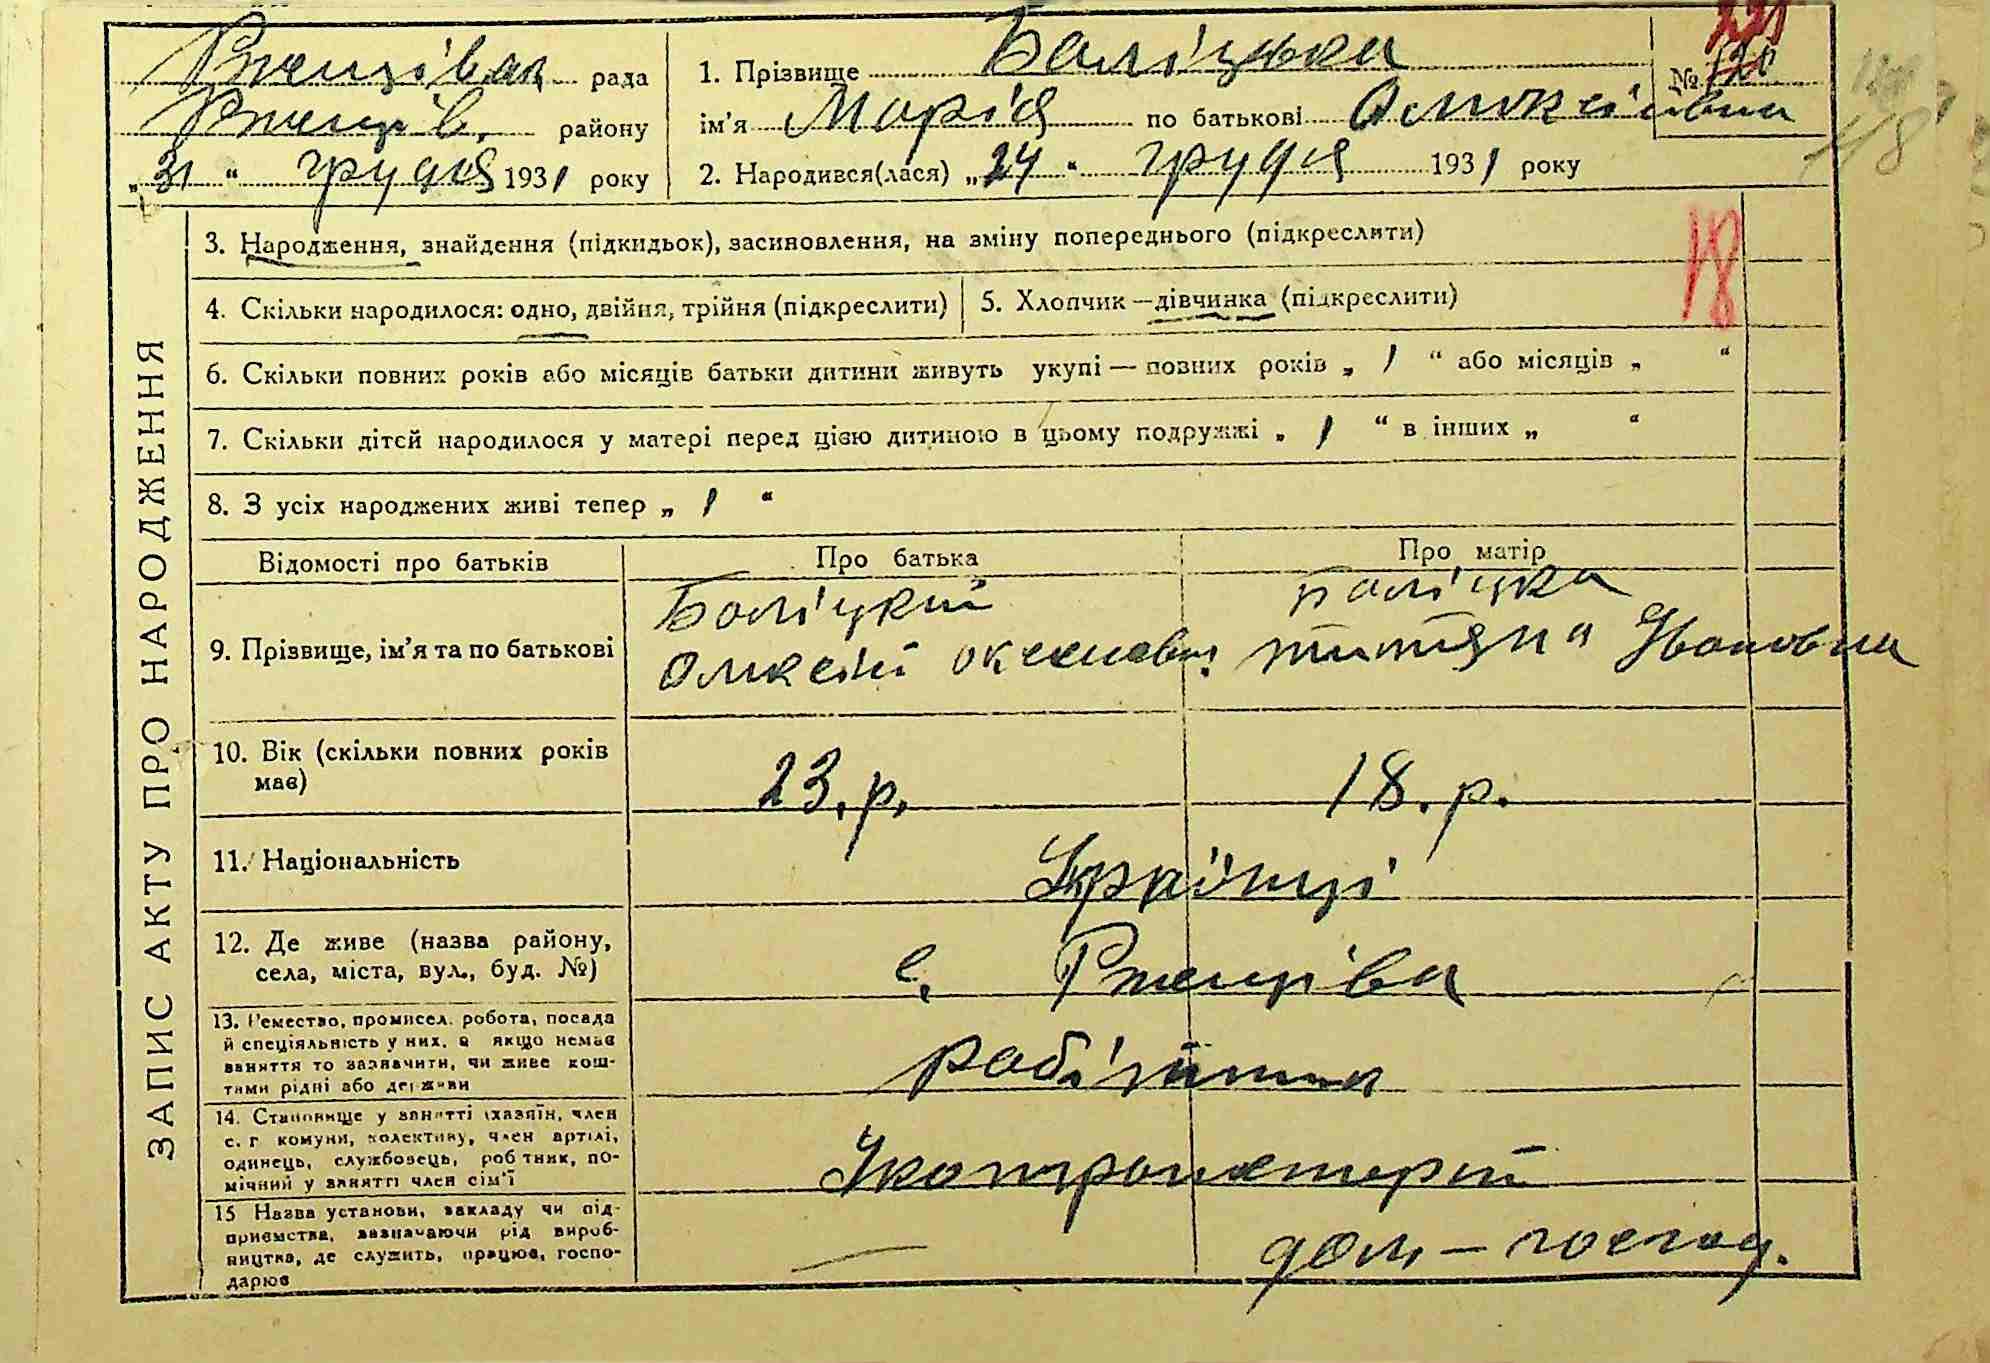 рада
1. Прізвище Баліцька
№
району
ім'я Марія по батькові
„31“ грудня 1931 року
2. Народився(лася) „24“ грудня 1931 року
18
118
ЗАПИС АКТУ ПРО НАРОДЖЕННЯ
3. Народження, знайдення (підкидьок), засиновлення, на зміну попереднього (підкреслити)
4. Скільки народилося: одно, двійня, трійня (підкреслити)
5. Хлопчик — дівчинка (підкреслити)
6. Скільки повних років або місяців батьки дитини живуть укупі — повних років „ 1 “ або місяців „ “
7. Скільки дітей народилося у матері перед цією дитиною в цьому подружжі „ 1 “ в інших „ “
8. З усіх народжених живі тепер „ 1 “
Відомості про батьків
Про батька
Про матір
9. Прізвище, ім'я та по батькові
Баліцкий
Баліцка
Ивановна
10. Вік (скільки повних років
має)
23.р.
18.р.
11. Національність
Українці
12. Де живе (назва району,
села, міста, вул., буд. №)
с.
13. Ремество, промисел, робота, посада
й спеціяльність у них, а якщо немає
заняття то зазначити, чи живе кош-
тами рідні або держави
14. Становище у занятті (хазяїн, член
с. г комуни, колективу, член артілі,
одинець, службовець, робітник, по-
мічний у занятті член сім'ї
15 Назва установи, закладу чи під-
приємства, зазначаючи рід вироб-
ництва, де служить, працює, госпо-
дарює
—
дом — господ.